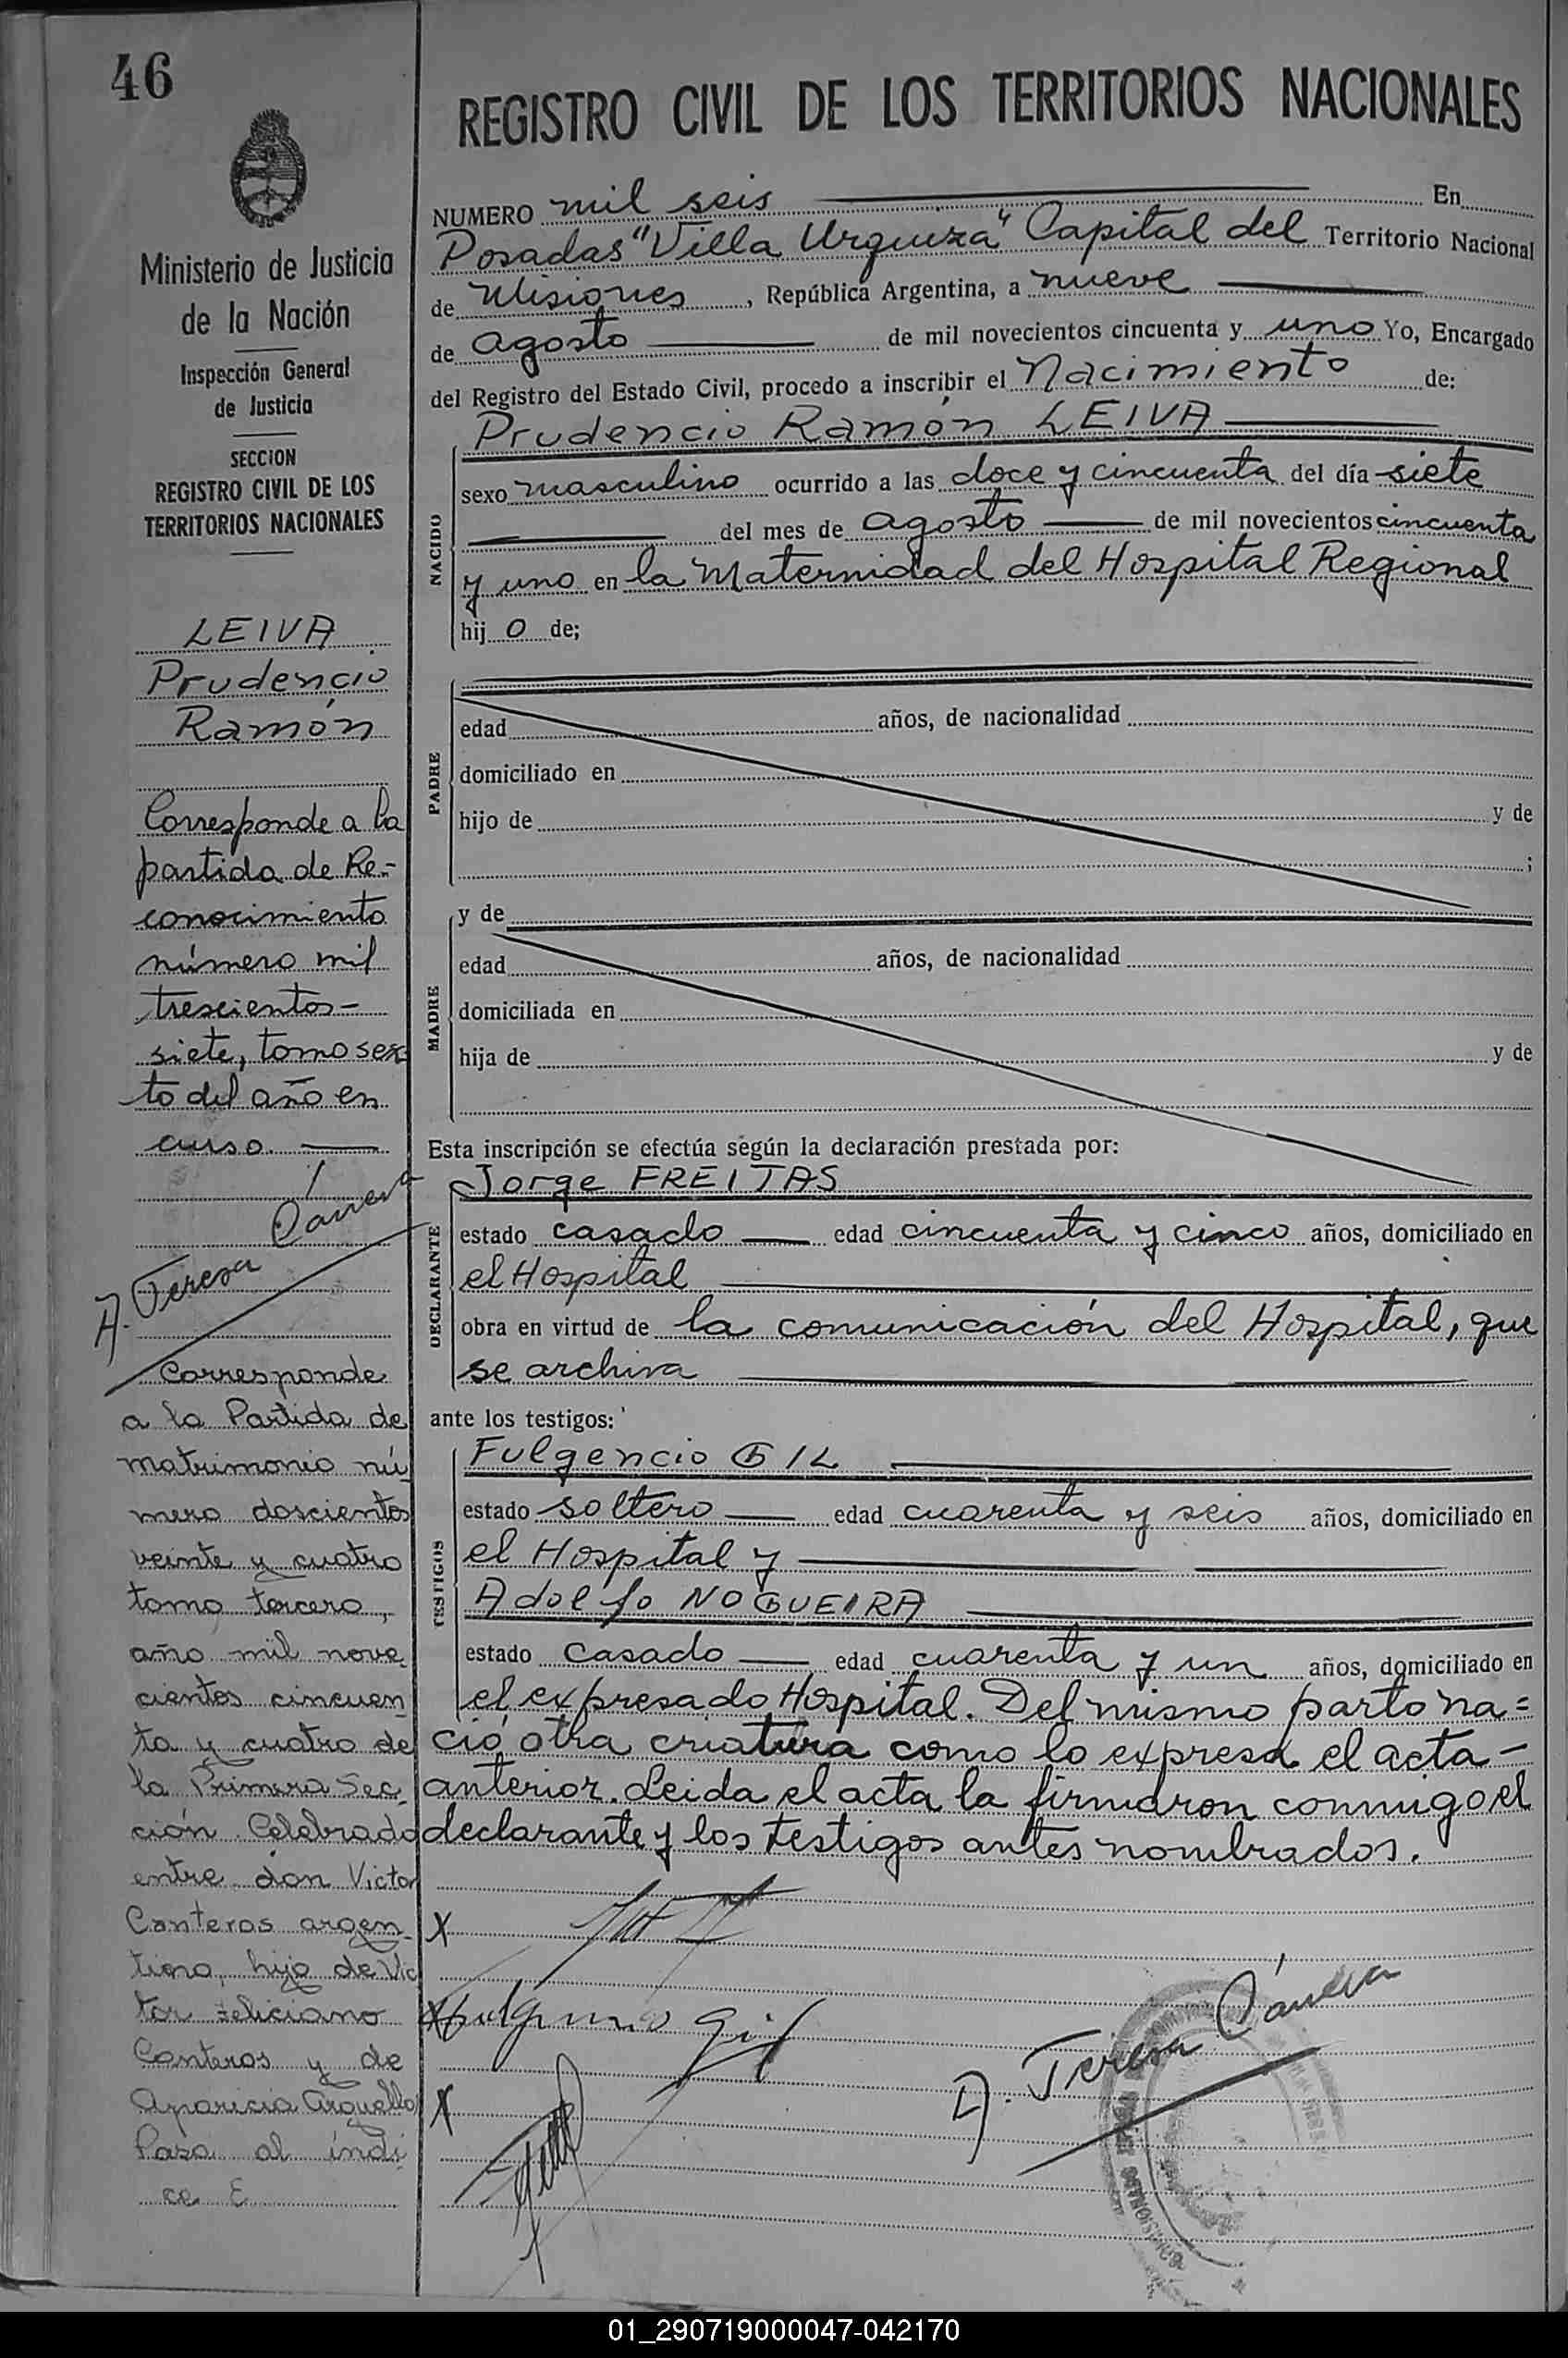 46
Ministerio de Justicia
de la Nación
Inspección General
de Justicia
SECCION
REGISTRO CIVIL DE LOS
TERRITORIOS NACIONALES
LEIVA
Prudencio
Ramón
Corresponde a la
partida de Re-
conocimiento
número mil
trescientos-
siete, tomo sex
to del año en
curso.
A. Teresa
Corresponde
a la Partida de
matrimonio nú
mero doscientos
veinte y cuatro
tomo tercero,
año mil nove
cientos cincuen
ta y cuatro de
la Primera Sec
ción Celebrado
entre don Victor
Canteros argen
tino, hijo de Vic
tor Feliciano
Canteros y de
Aparicia Arguello
Pasa al índi
ce E
REGISTRO CIVIL DE LOS TERRITORIOS NACIONALES
NUMERO mil seis En
Posadas "Villa Urquiza" Capital del Territorio Nacional
de Misiones, República Argentina, a nueve
de agosto de mil novecientos cincuenta y uno Yo, Encargado
del Registro del Estado Civil, procedo a inscribir el Nacimiento de:
Prudencio Ramón LEIVA
NACIDO
sexo masculino ocurrido a las doce y cincuenta del día siete
del mes de agosto de mil novecientos cincuenta
y uno en la Maternidad del Hospital Regional
hijo de;
PADRE
edad años, de nacionalidad
domiciliado en
hijo de y de
;
MADRE
y de
edad años, de nacionalidad
domiciliada en
hija de y de
Esta inscripción se efectúa según la declaración prestada por:
DECLARANTE
Jorge FREITAS
estado casado edad cincuenta y cinco años, domiciliado en
el Hospital
obra en virtud de la comunicación del Hospital, que
se archiva
ante los testigos:
TESTIGOS
Fulgencio GIL
estado soltero edad cuarenta y seis años, domiciliado en
el Hospital y
Adolfo NOGUEIRA
estado casado edad cuarenta y un años, domiciliado en
el expresado Hospital. Del mismo parto na=
ció otra criatura como lo expresa el acta-
anterior. Leida el acta la firmaron conmigo el
declarante y los testigos antes nombrados.
X
X Fulgencio Gil
X
A. Teresa
01_290719000047-042170